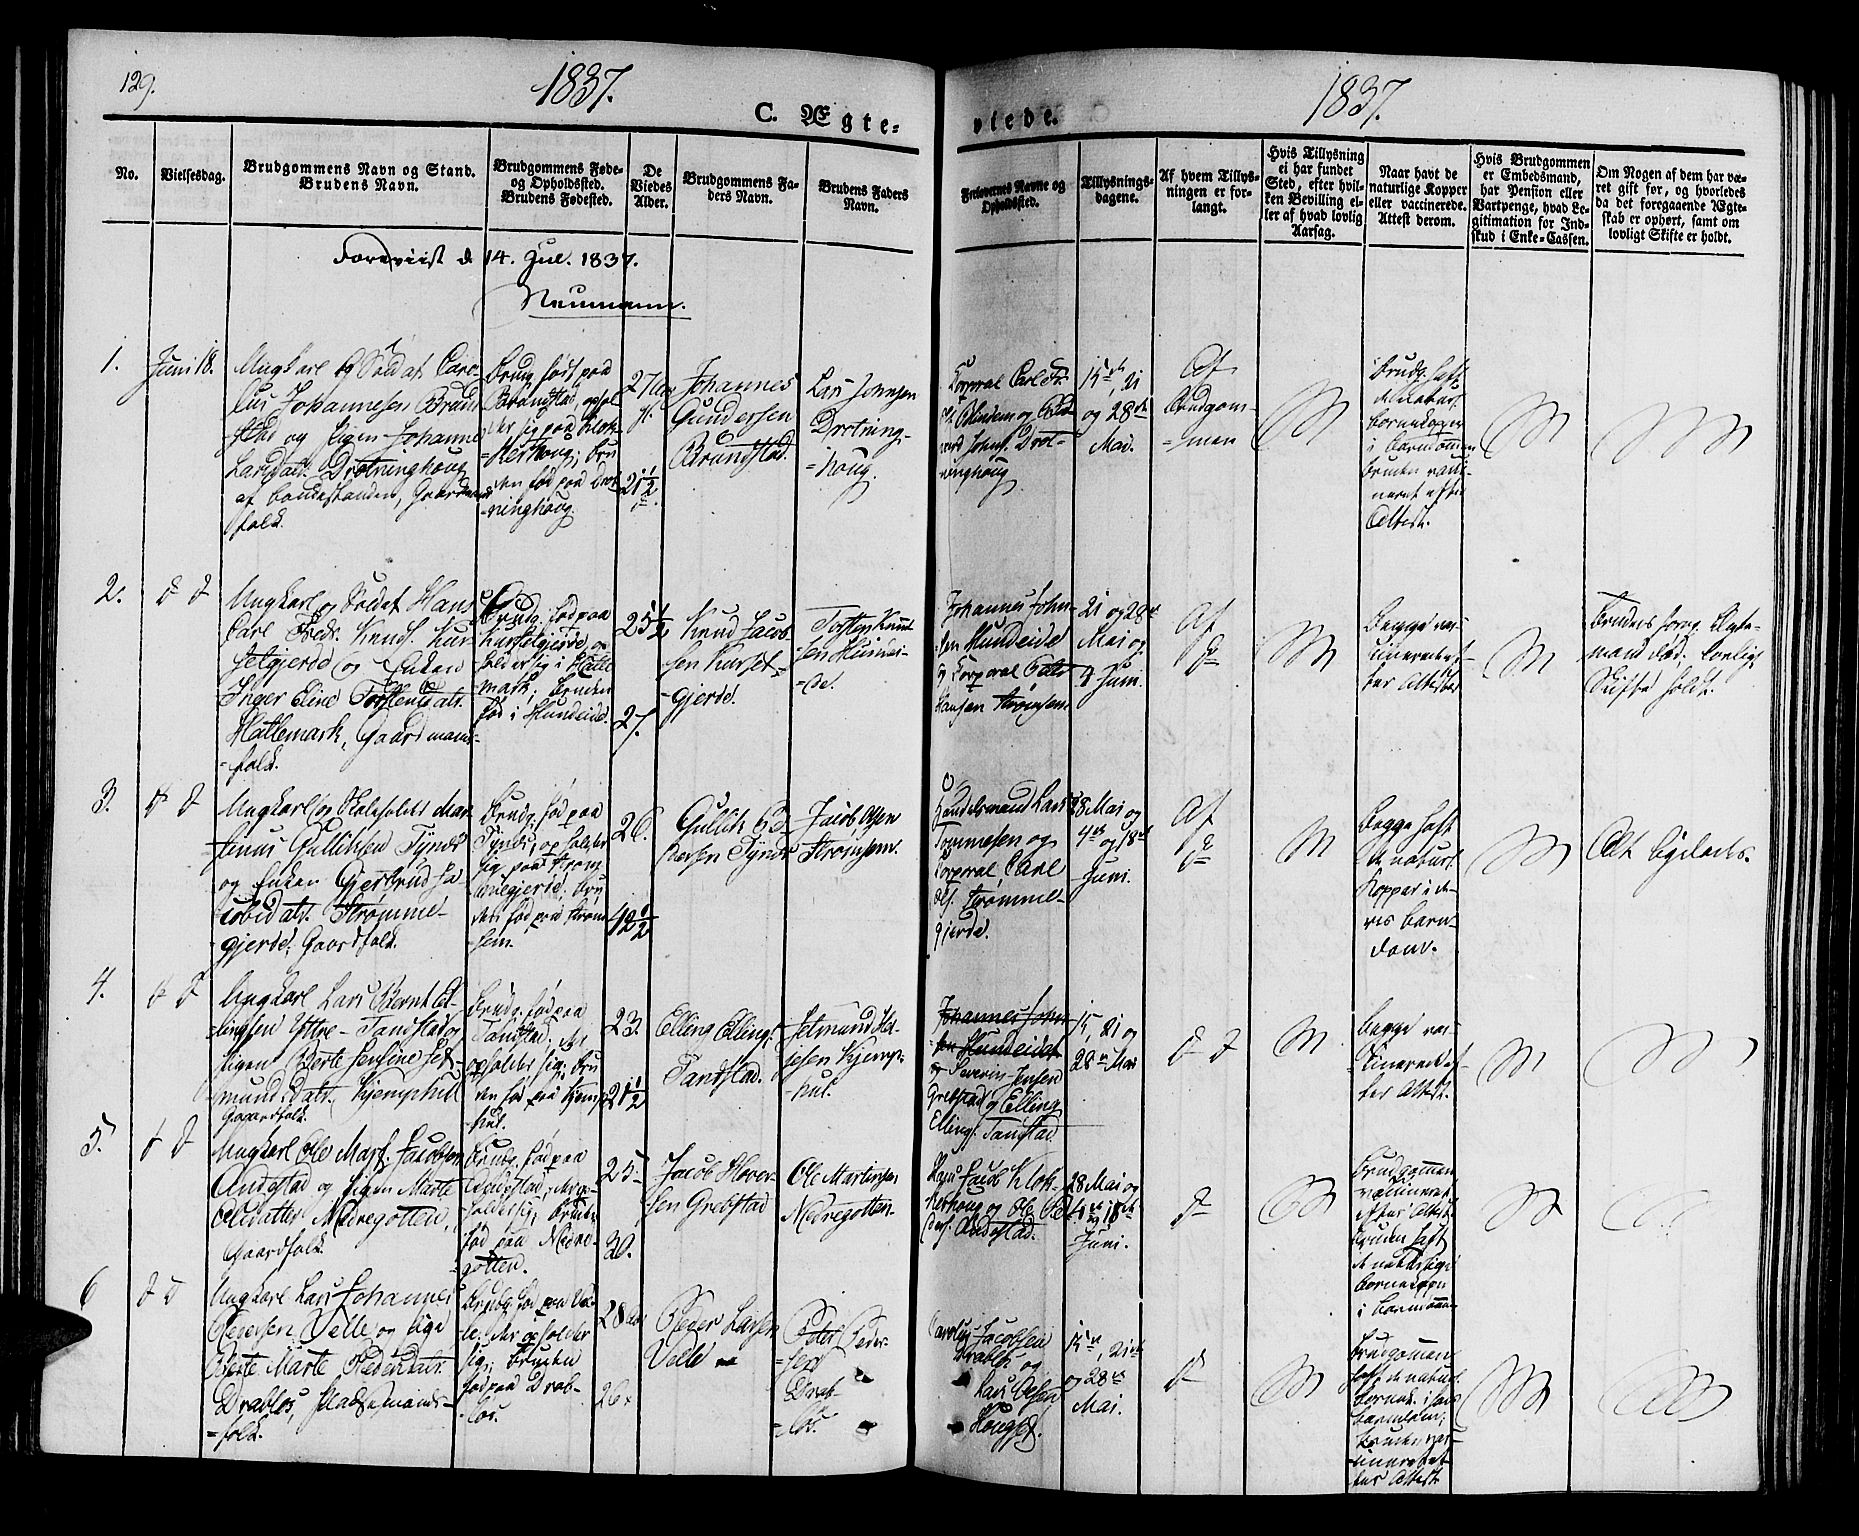 129.
1837.
1837.
C. Ægte-
viede.
No.
Vielsesdag.
Brudgommens Navn og Stand.
Brudens Navn.
Brudgommens Føde-
og Opholdssted.
Brudens Fødested.
De
Viedes
Alder.
Brudgommens Fa-
ders Navn.
Brudens Faders
Navn.
Forlovernes Navne og
Opholdssted.
Tillysnings-
dagene.
Af hvem Tillys-
ningen er for-
langt.
Hvis Tillysning
ei har fundet
Sted, efter hvil-
ken Bevilling el-
ler af hvad lovlig
Aarsag.
Naar havt de
naturlige Kopper
eller vaccinerede.
Attest derom.
Hvis Brudgommen
er Embedsmand,
har Pension eller
Vartpenge, hvad Le-
gitimation for Ind-
skud i Enke-Cassen.
Om Nogen af dem har væ-
ret gift før, og hvorledes
da det foregaaende Ægte-
skab er ophørt, samt om
lovligt Skifte er holdt.
Foreviist d 14. Jul. 1837.
Neumann.
1.
Juni 18.
Ungkarl og Soldat Caro-
lus Johannesen Brun-
stad og Pigen Johanne
Larsdatr. Drotninghoug
af Bondestanden, Gaardmands
folk.
Brudg. født paa
Brunstad, ophol-
der sig paa Klok-
kerhoug; Bru-
den fød paa Drot-
ninghoug.
27 Aar
gl.
21 1/2
Johannes
Gundersen
Brunstad.
Lars Johnsen
Drotning-
houg.
Korporal Carl Fr.
Drot-
ninghoug
15de, 21
og 28de
Mai.
Af
Brudgom-
men
Brudg. haft
de naturl.
Børnekopper
i Barnd ommen
Bruden vacci-
neret efter
Attest.
2.
d d
Ungkarl og Soldat Hans
Carl Fredr. Knuds. Kur-
setgjerde og Enken
Inger Eline Torstensdatr.
Hatlemark, Gaardmands-
folk.
Brudg. fød paa
Kursetgjerde, op-
holder sig i Hatle-
mark; Bruden
fød i Hundeide.
25 1/2
27.
Knud Jacob-
sen Kurset-
gjerde.
Torsten Knud-
sen Hundei-
de.
Johannes John-
sen Hundeide
og Korporal Peter
Hansen Strømsem
21 og 28de
Mai og
4 Juni.
Af
d
Begge vac-
cinerede ef-
ter Attester
Brudens forrige Ægte-
mand død. Lovligt
Skifte holdt.
3.
d d
Ungkarl og Skoleholder Mar-
tinus Gullichsen Tynes
og Enken Gjertrud Ja-
cobsdatr. Strømme-
gjerde. Gaardfolk.
Brudg. fød paa
Tynes, opholder
sig paa Strøm-
megjerde; Bru-
den fød paa Strøm-
sem.
26.
42 1/2
Gullik Pe-
dersen Tynes
Jacob Olsen
Strømsem.
Handelsmand Lars
Tommesen og
Korporal Carl
Ols. Strømme-
gjerde.
28 Mai og
4de og 18de
Juni.
Af
d
Begge haft
de naturl.
Kopper i de-
res Barn-
dom.
Alt ligeledes.
4.
d d
Ungkarl Lars Bernt El-
lingsen Yttre-Tandstad og
Pigen Berte Severine Jet-
mundsdatr. Kjemphul
Gaardfolk.
Brudg. fød paa
Tandstad, der
opholder sig; Bru-
den fød paa Kjemp-
hul.
23.
21 1/2
Elling Ellings.
Tandstad.
Jetmund
Kjemp-
hul.
Johannes John-
sen Hundeidet
og Severin Jensen
Grebstad og Elling
Ellings. Tandstad.
15, 21 og
28de Mai
d d
Begge vac-
cinerede ef-
ter Attest.
5.
d d
Ungkarl Ole Mart. Jacobsen
Andestad og Pigen Marte
Olsdatter Nedregotten,
Gaardfolk.
Brudg. fød paa
fød paa Nedre-
gotten.
25
30.
Jacob Hover-
sen Grebstad
Ole Martinsen
Nedregotten
Hans Jacob Klok-
kerhoug og Ole Pe-
ders. Andestad.
28 Mai og
4de og 18de
Juni.
d
Brudgommen
vaccineret
efter Attest
Bruden haft
de naturlige
Børnekopper
i Barndommen
6
d d
Ungkarl Lars Johannes
Pedersen Velle og Pige
Berte Marte Pedersdatr.
Drabløs, Pladsemands-
folk.
Brudg. fød paa Vel-
le, der opholder
sig; Bruden
fød paa Drab-
løs.
28 Aar
26.
Peder Larsen
Velle
Peder Peder-
sen
Drab-
løs.
Carolus Jacobsen
Drabløs og
Lars Olsen
15de, 21de
og 28de
Mai.
d
Brudgommen
haft de naturl.
Børnek. i sin
Barndom;
Bruden vac-
cineret ef-
ter Attest